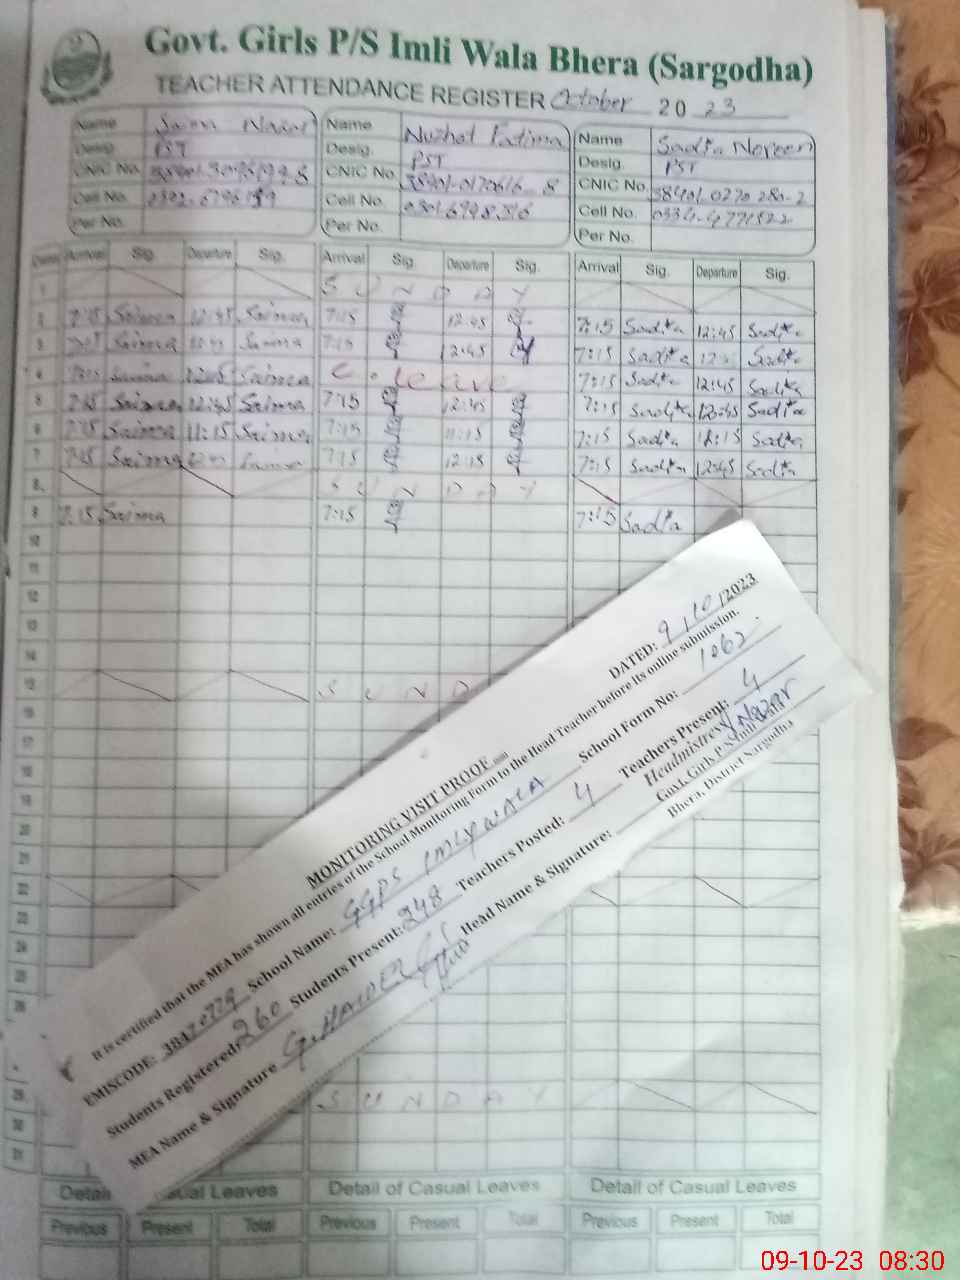 Govt. Girls P/S Imli Wala Bhera (Sargodha)
TEACHER ATTENDANCE REGISTER October 2023
Name Saima Nazar Name Nuzhat Fatima Name Sadia Noreen
Desig. PST Desig. PST Desig. PST
CNIC No. CNIC No. 38401-0170616-8 CNIC No. 38401-0270280-2
Cell No. Cell No. Cell No. 0334-4771522
Per No. Per No. Per No.
Arrival Sig. Departure Sig. Arrival Sig. Departure Sig. Arrival Sig. Departure Sig.
1 SUNDAY
2 7:15 Saima 12:45 Saima 7:15 12:45 7:15 Sadia 12:45 Sadia
3 Saima Saima 7:15 12:45 7:15 Sadia Sadia
4 7:15 Saima Saima C. leave 7:15 Sadia 12:45 Sadia
5 7:15 Saima 12:45 Saima 7:15 12:45 7:15 Sadia 12:45 Sadia
6 7:15 Saima 11:15 Saima 7:15 11:15 7:15 Sadia Sadia
7 7:15 Saima Saima 7:15 7:15 Sadia 12:45 Sadia
8 SUNDAY
9 7:15 Saima 7:15 7:15 Sadia
10
11
12
13
14
15 SUND
16
17
18
19
20
21
22
23
24
25
26
29 SUNDAY
30
31
MONITORING VISIT PROOF DATED: 9/10/2023
It is certified that the MEA has shown all entries of the School Monitoring Form to the Head Teacher before its online submission.
EMISCODE: School Name: GGPS IMLY WALA School Form No: 1062
Students Registered: 260 Students Present: 248 Teachers Posted: 4 Teachers Present: 4
MEA Name & Signature G. HAIDER Head Name & Signature: Nazar
Headmistress
Govt. Girls P/S Imli
Bhera, District Sargodha
Detail of Casual Leaves Detail of Casual Leaves Detail of Casual Leaves
Previous Present Total Previous Present Total Previous Present Total
09-10-23 08:30